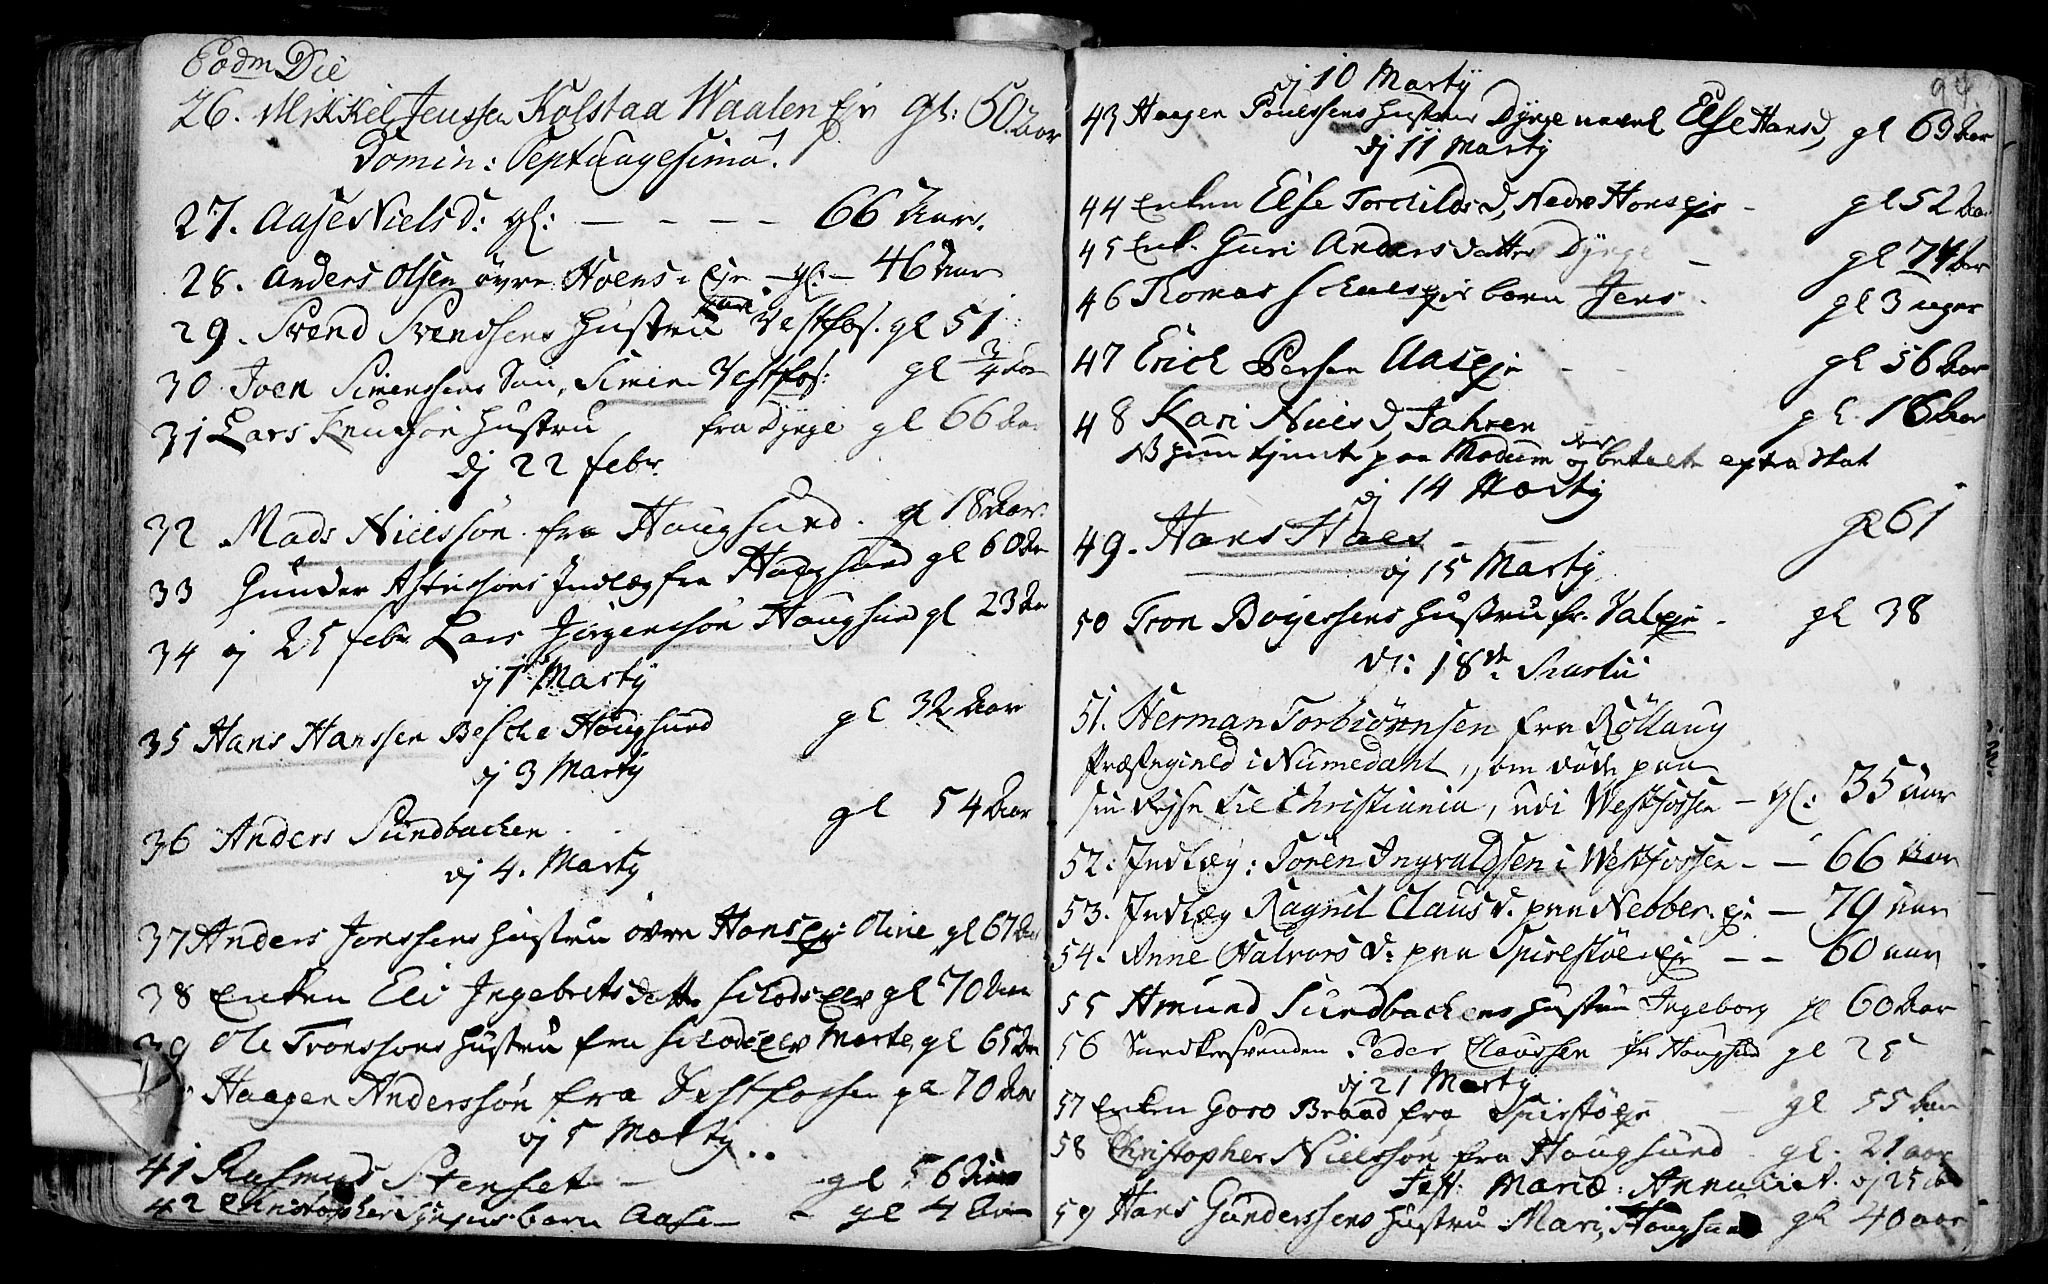 Eodm Die
26. Mikkel Jenssen Kolstaa Waalen Eje gl: 50 aar
Domin: Septuagesima.
27. Aase Niels D: gl: — — — — 66 Aar.
28. Anders Olsen övre Hoens Eje — gl: — 46 aar
29. Svend Svendsens Hustru Vestfos. gl 51
30 Joen Simenssens Sön, Simen Vestfos: gl 3/4 aar
31 Lars Knudsøns Hustru fra Dyrje gl 66 aar
dj 22 febr
32 Mads Nielssøn fra Hougsund. gl 18 Aar.
33 Gunder Astrissøns Indlæg fra Hougsund gl 60 Aar
34 dj 25 febr Lars Jörgensön Hougsund gl 23 Aar
dj 1 Martij
35 Hans Hanssen Beske Hougsund gl 32 Aar
dj 3 Martij
36 Anders Sundbacken gl 54 Aar
dj 4. Martij
37 Anders Jonssens Hustru övre Hons Eje: Oline gl 67 Aar
38 Enken Eli Ingebretsdatter Schods Eje gl 70 Aar
39 Ole Tronssons Hustru fra Schods Eje Marte, gl 65 Aar
Haagen Anderssön fra Vestfossen gl 70 Aar
dj 5 Martij
41 Rasmus Stenset — gl 56 Aar
42 Christopher barn Aase — gl 4 Aar
94.
dj 10 Martij
43 Haagen Poulssens Hustrue Dyrje navnl Else Hansd, gl 63 Aar
dj 11 Martij
44 Enken Else Torchilds d, Nedre Hons Eje — gl 52 Aar
45 Enk. Guri Andersdatter Dyrge — gl 74 Aar
46 Thomas barn Jens. gl 3 uger
47 Erich Persen Aas Eje — gl 56 Aar
48 Kari Niels d, Jahren gl. 16 Aar
NB hun tjente paa Modum og der betalte extra skat
dj 14 Martij
49. Hans Haes — gl 61
dj 15 Martij
50 Tron Boyessens Hustru fr. Val Eje — gl 38
D: 18de Martii
51. Herman Torbiörnsen fra Röllaug
Præstegield i Numedahl, som döde paa
sin Rejse til Christiania, udi Westfossen — gl: 35 aar
52. Indlæg: Sören Ingvaldsen i Westfossen — — 66 Aar
53. Indlæg Ragnil Claus d. paa Nebber. eje — 79 aar
54. Anne Halvors d: paa Spirestöe Eje — — 60 aar
55 Amund Sundbackens Hustru Ingeborg gl 60 Aar
56 Peder Claussen fr Hougsund gl 25
dj 21 Martij
57 Enken Goro Braad fra Spirstöeje — gl 55 Aar
58 Christopher Nielssön fra Hougsund gl. 21 aar
Fest: Mariæ: Annunciat. dj 25
59 Hans Gunderssens Hustru Mari, Hougsund gl 40 aar